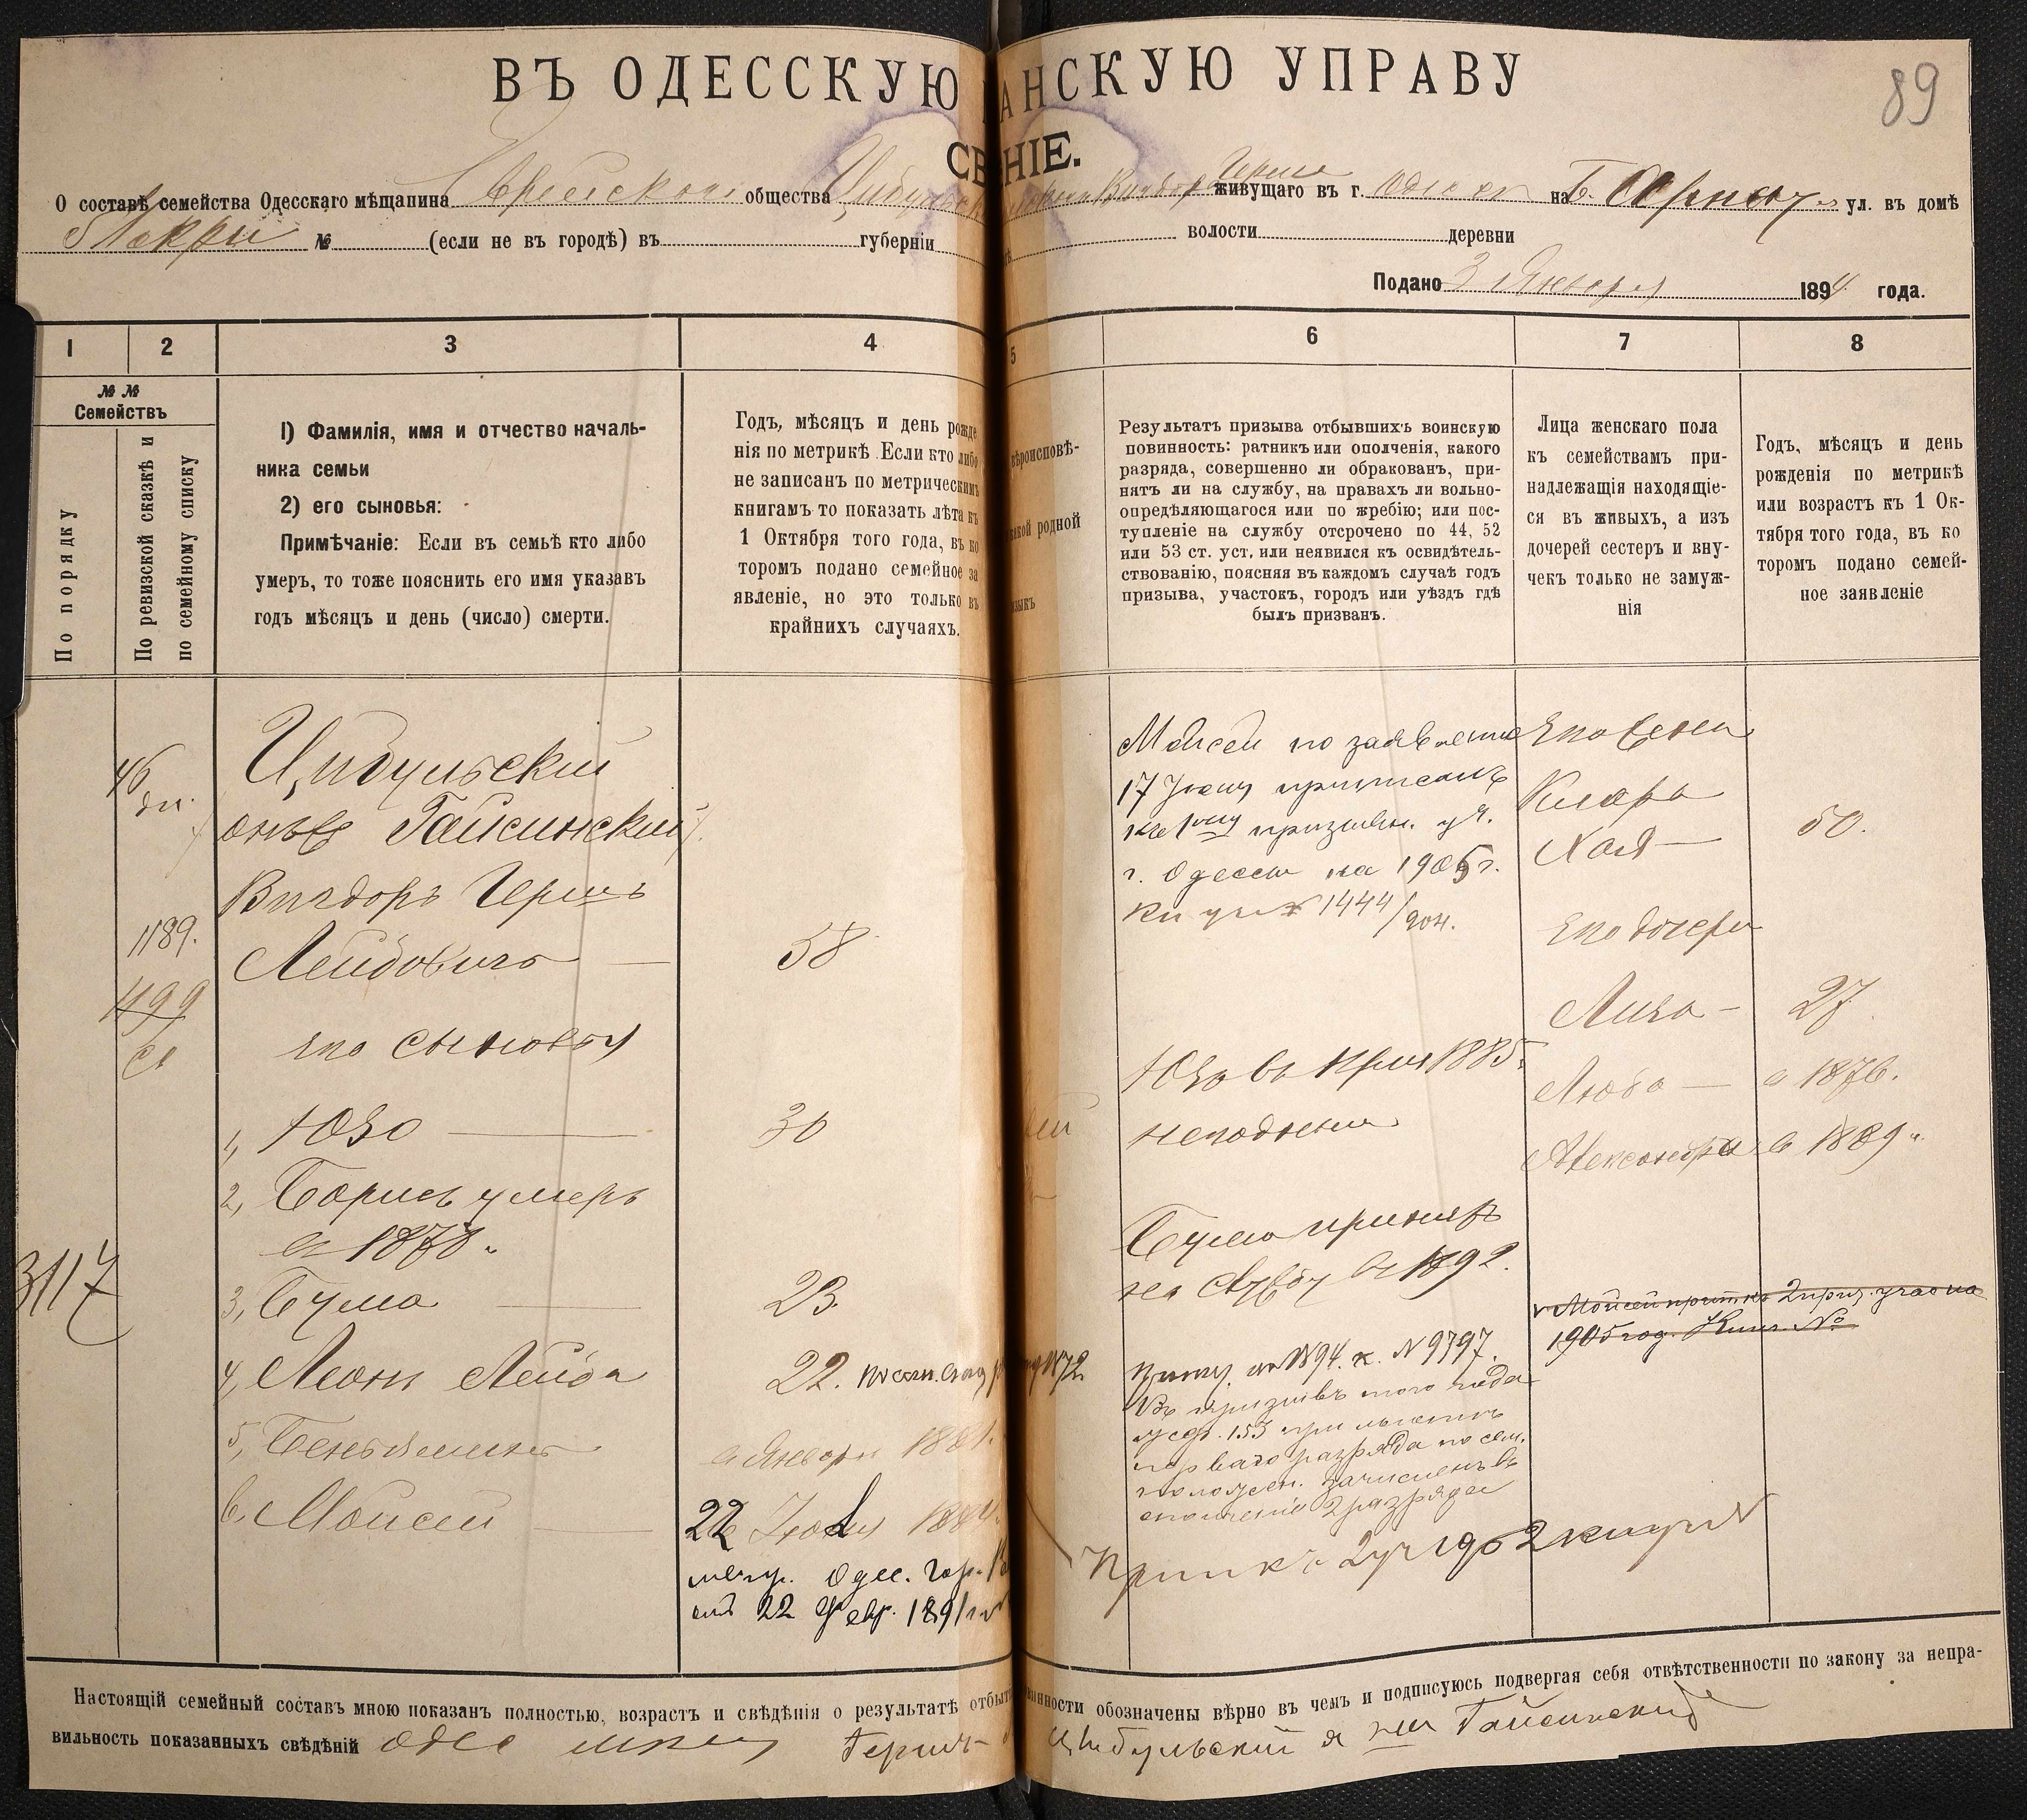 ВЪ ОДЕССКУЮ АНСКУЮ УПРАВУ
89
СВ НІЕ.
О составѣ семейства Одесскаго мѣщанина Еврейскаго общества Цибульск Герша живущаго въ г. Одессѣ на Б. Арнаут. ул. въ домѣ
Макри № (если не въ городѣ) въ губерніи волости деревни
Подано 3 Января 1894 года.
1 2 3 4 5 6 7 8
№ № Семействъ
По порядку
По ревизской сказкѣ и по семейному списку
1) Фамилія, имя и отчество началь-
ника семьи
2) его сыновья:
Примѣчаніе: Если въ семьѣ кто либо
умеръ, то тоже пояснить его имя указавъ
годъ мѣсяцъ и день (число) смерти.
Годъ, мѣсяцъ и день рожде
нія по метрикѣ. Если кто либо
не записанъ по метрическимъ
книгамъ то показать лѣта къ
1 Октября того года, въ ко
торомъ подано семейное за
явленіе, но это только въ
крайнихъ случаяхъ.
вѣроисповѣ-
какой родной
языкъ
Результатъ призыва отбывшихъ воинскую
повинность: ратникъ или ополченія, какого
разряда, совершенно ли обракованъ, при-
нятъ ли на службу, на правахъ ли вольно-
опредѣляющагося или по жребію; или пос-
тупленіе на службу отсрочено по 44, 52
или 53 ст. уст. или неявился къ освидѣтель-
ствованію, поясняя въ каждомъ случаѣ годъ
призыва, участокъ, городъ или уѣздъ гдѣ
былъ призванъ.
Лица женскаго пола
къ семействамъ при-
надлежащія находящіе-
ся въ живыхъ, а изъ
дочерей сестеръ и вну-
чекъ только не замуж-
нія
Годъ, мѣсяцъ и день
рожденія по метрикѣ
или возрастъ къ 1 Ок-
тября того года, въ ко
торомъ подано семей-
ное заявленіе
46
Цибульскій
онъ же Гайсинскій
Вигдоръ Гершъ
1189.
Лейбовичъ — 58
1199
его сыновья
1, Юзо — 30
2, Борисъ умеръ
въ 1878.
3117
3, Бума — 23.
4, Леонъ Лейба 22. 1872
5, Беньяминъ въ Январѣ 1881.
6. Мойсей — 22 Іюля 1884.
метр. Одес. гор.
22 Февр. 1891
Мойсей по заявленію
17 Іюня приписанъ
къ 1му призывн. уч.
г. Одессы на 1905 г.
1444/904.
Юзо въ 1885.
неподлежа
Бума принятъ
на службу въ 1892.
1894. к. N 9797.
Въ призывъ того года
перваго разряда по сем.
полож. зачисленъ въ
ополченіе 2 разряда
Его жена
Клара
Хая — 50.
Его дочери
Лиза — 27
Люба — в 1876.
Александра в 1889.
1905 год. Книг. №
Настоящій семейный составъ мною показанъ полностью, возрастъ и свѣдѣнія о результатѣ отбыт инности обозначены вѣрно въ чемъ и подписуюсь подвергая себя отвѣтственности по закону за непра-
вильность показанныхъ свѣдѣній Гершъ Цибульский я же Гайсинский